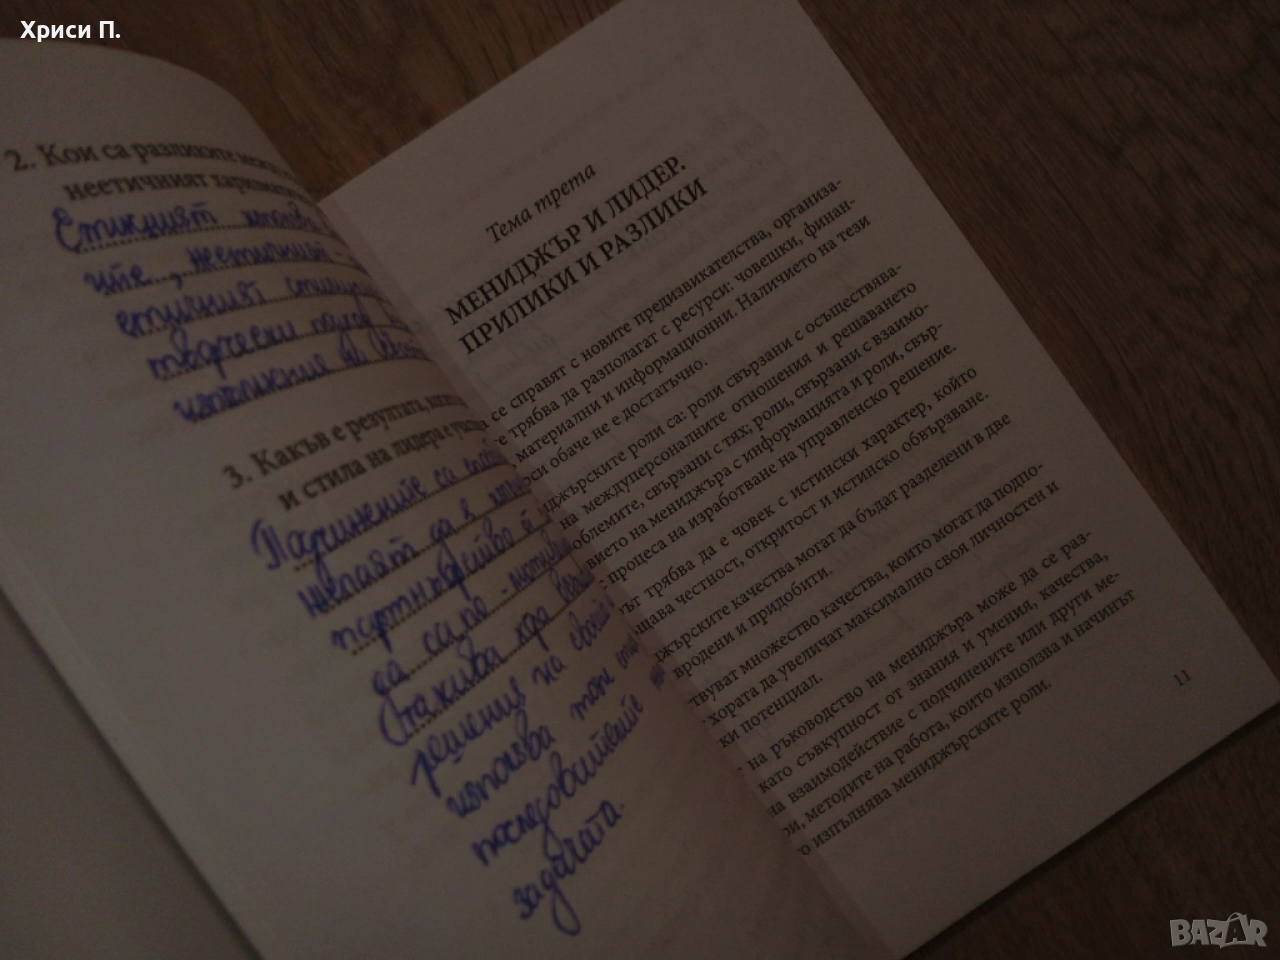 Хриси П.
2. Кои са разликите между
неетичният харизматич
Етичният използва
ците, неетичният -
етичният стимули
творчески подход
изложение на
3. Какъв е резултата, кога
и стила на лидера е
Подчинените са
желаят да
партньорство
да са по-мотиви
Такива
решения на своят
използва този
последователите
задачата.
Тема трета
МЕНИДЖЪР И ЛИДЕР.
ПРИЛИКИ И РАЗЛИКИ
се справят с новите предизвикателства, организа-
трябва да разполагат с ресурси: човешки, финан-
материални и информационни. Наличието на тези
рси обаче не е достатъчно.
джърските роли са: роли свързани с осъществява-
на междуперсоналните отношения и решаването
облемите, свързани с тях; роли, свързани с взаимо-
вието на мениджъра с информацията и роли, свър-
процеса на изработване на управленско решение.
ът трябва да е човек с истински характер, който
щава честност, откритост и истинско обвързване.
джърските качества могат да бъдат разделени в две
вродени и придобити.
твуват множество качества, които могат да подпо-
хората да увеличат максимално своя личностен и
ки потенциал.
на ръководство на мениджъра може да се раз-
като съвкупност от знания и умения, качества,
на взаимодействие с подчинените или други ме-
ри, методите на работа, които използва и начинът
о изпълнява мениджърските роли.
11
BAZAR